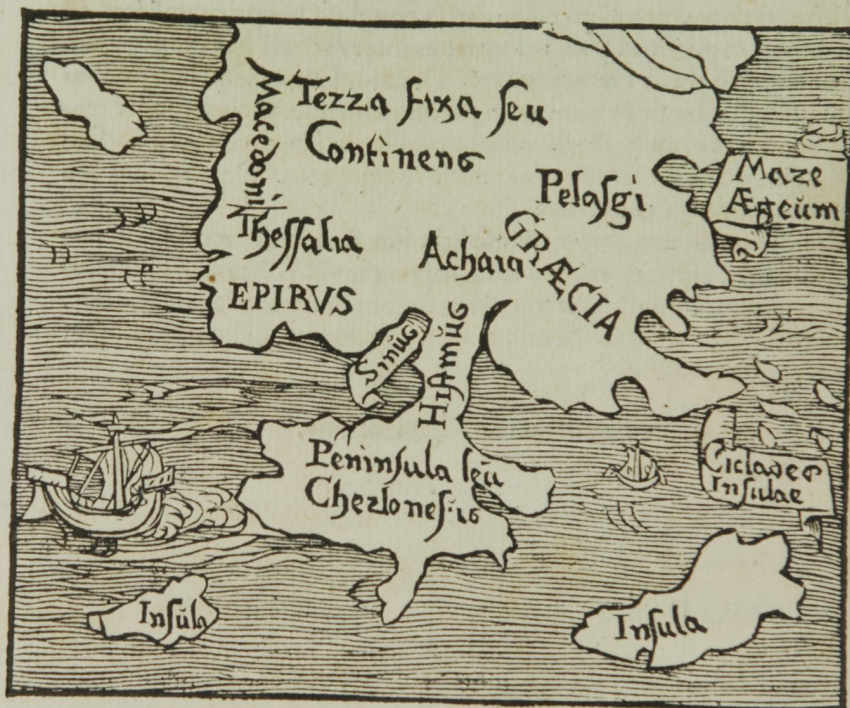 Terra fixa seu
Continens
Macedoni
Thessalia
EPIRVS
Pelasgi
Achaia
GRÆCIA
Mare
Ægeūm
Sinūs
Histmūs
Peninsula seū
Chersonesus
Ciclades
Insulae
Insūla
Insula